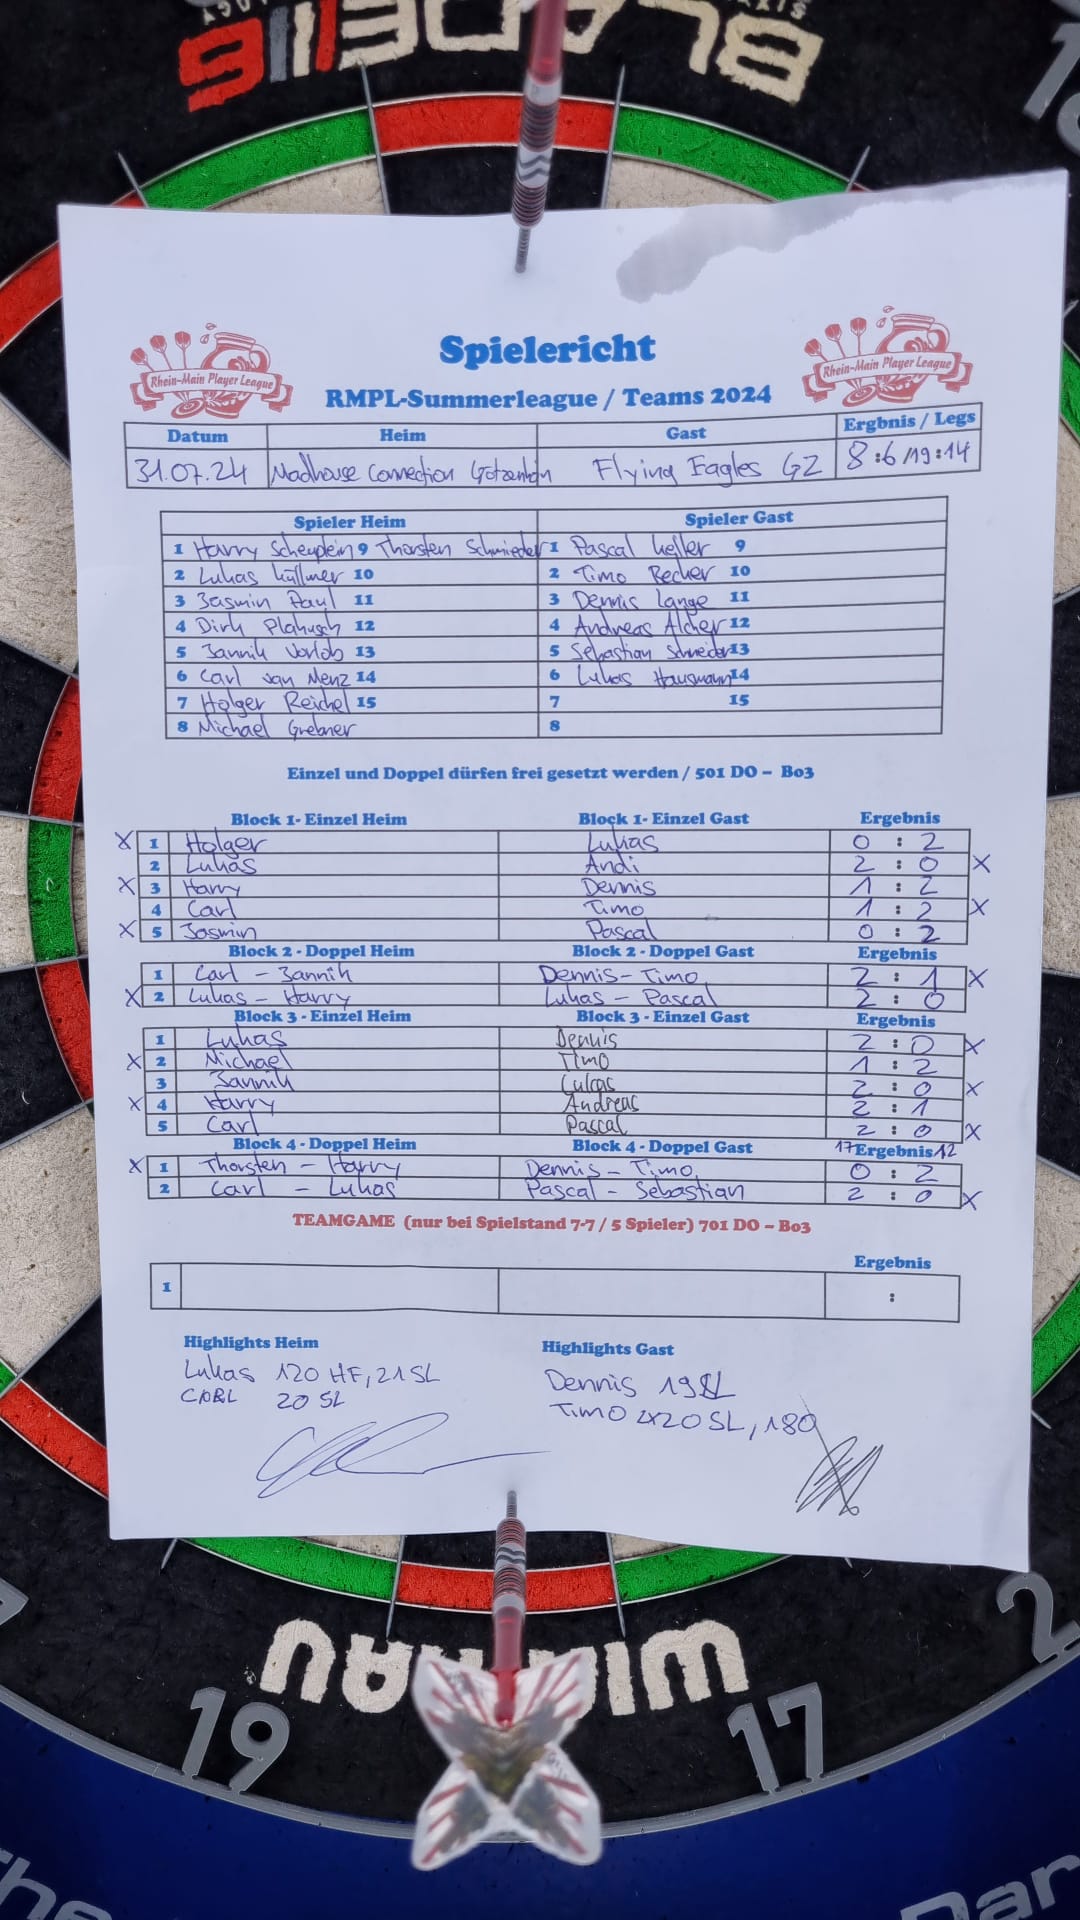 BLADE 6
Spielericht
Rhein-Main Player League
Rhein-Main Player League
RMPL-Summerleague / Teams 2024
Datum Heim Gast Ergbnis / Legs
31.07.24 Madhouse Connection Flying Eagles GZ 8:6/19:14
Spieler Heim Spieler Gast
1 Harry Scheuplein 9 Thorsten Schmieder 1 Pascal Keller 9
2 Lukas Küllmer 10 2 Timo Becker 10
3 Jasmin Paul 11 3 Dennis Lange 11
4 Dirk 12 4 Andreas Alcher 12
5 Jannik Vorlob 13 5 Sebastian Schneider 13
6 Carl van Menz 14 6 Lukas Hausmann 14
7 Holger Reichel 15 7 15
8 Michael Grebner 8
Einzel und Doppel dürfen frei gesetzt werden / 501 DO – Bo3
Block 1- Einzel Heim Block 1- Einzel Gast Ergebnis
X 1 Holger Lukas 0 : 2
2 Lukas Andi 2 : 0 X
X 3 Harry Dennis 1 : 2
4 Carl Timo 1 : 2 X
X 5 Jasmin Pascal 0 : 2
Block 2 - Doppel Heim Block 2 - Doppel Gast Ergebnis
1 Carl – Jannik Dennis – Timo 2 : 1 X
X 2 Lukas – Harry Lukas – Pascal 2 : 0
Block 3 - Einzel Heim Block 3 - Einzel Gast Ergebnis
1 Lukas Dennis 2 : 0 X
X 2 Michael Timo 1 : 2
3 Jannik Lucas 2 : 0 X
X 4 Harry Andreas 2 : 1
5 Carl Pascal 2 : 0 X
Block 4 - Doppel Heim Block 4 - Doppel Gast 17 Ergebnis 12
X 1 Thorsten – Harry Dennis – Timo 0 : 2
2 Carl – Lukas Pascal – Sebastian 2 : 0 X
TEAMGAME (nur bei Spielstand 7-7 / 5 Spieler) 701 DO – Bo3
Ergebnis
1 :
Highlights Heim Highlights Gast
Lukas 120 HF, 21 SL Dennis 19 SL
CARL 20 SL TIMO 2x20 SL, 180
WINMAU
19 17 2
The Dar